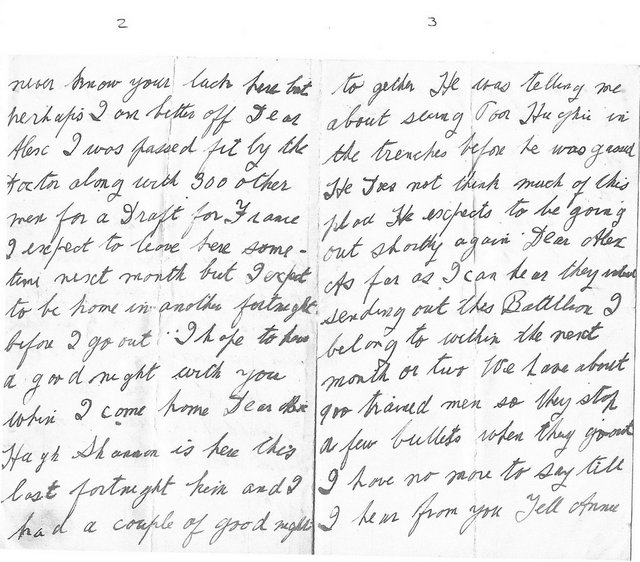 2
never know your luck here but
perhaps I am better off Dear
Alex I was passed fit by the
Doctor along with 300 other
men for a Draft for France
I expect to leave here some-
time next month but I expect
to be home in another fortnight
before I go out I hope to have
a good night with you
when I come home Dear Alex
Hugh Shannon is here this
last fortnight him and I
had a couple of good nights
3
to gether He was telling me
about seeing Poor Hughie in
the trenches before he was
He Does not think much of this
place He expects to be going
out shortly again Dear Alex
As far as I can hear they
sending out this Batallion I
belong to within the next
month or two We have about
900 trained men so they stop
a few bullets when they go out
I have no more to say till
I hear from you Tell Annie